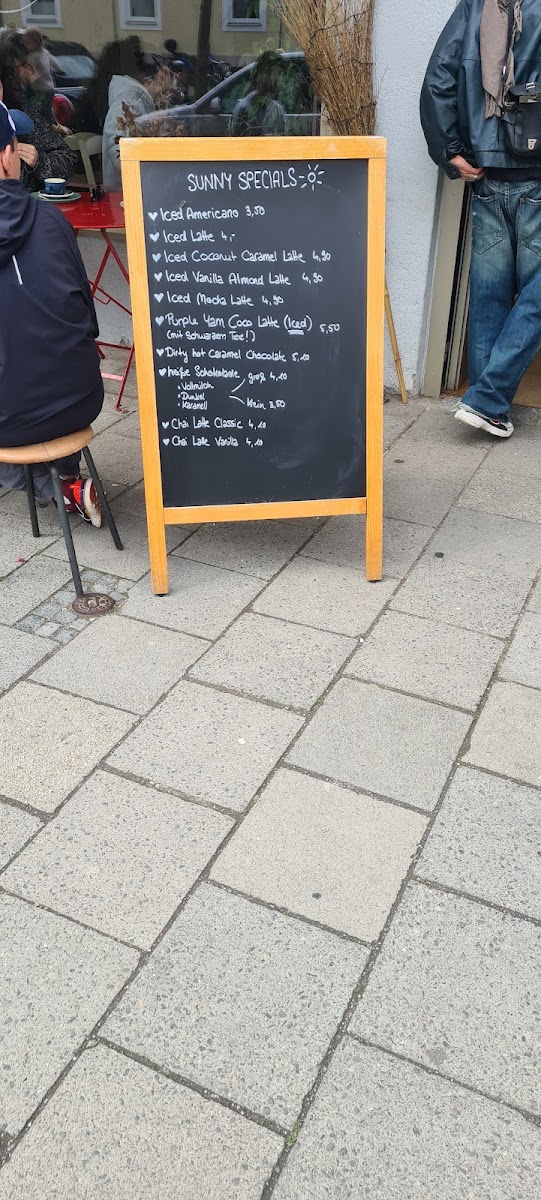 SUNNY SPECIALS
Iced Americano 3,50
Iced Latte 4,-
Iced Coconut Caramel Latte 4,90
Iced Vanilla Almond Latte 4,90
Iced Mocha Latte 4,90
Purple Yam Coco Latte (Iced) 5,50
(mit Schwarzem Tee!)
Dirty hot Caramel Chocolate 5,10
heiße Schokolade groß 4,10
• Vollmilch
• Dunkel
• Karamell klein 3,50
Chai Latte Classic 4,10
Chai Latte Vanilla 4,10